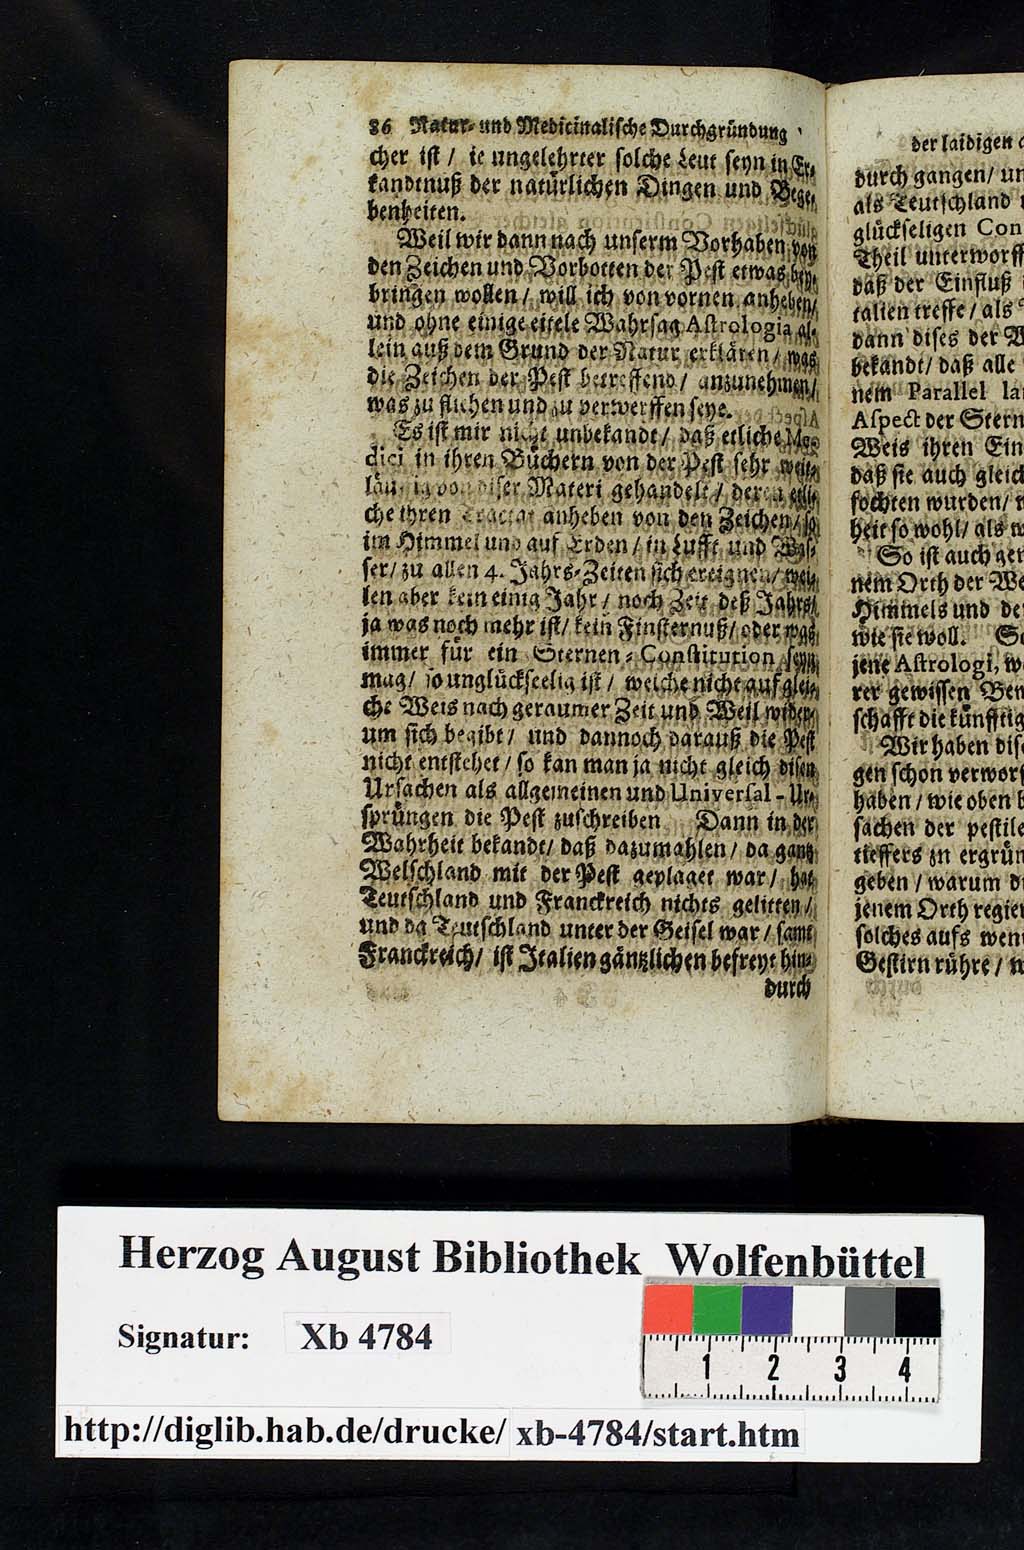 86 Natur- und Medicinalische Durchgründung
cher ist / ie ungelehrter solche Leut seyn in Er-
kandtnuß der natürlichen Dingen und Bege-
benheiten.
Weil wir dann nach unserm Vorhaben von
den Zeichen und Vorbotten der Pest etwas bey-
bringen wollen / will ich von vornen anheben /
und ohne einige eitele Wahrsag Astrologia al-
lein auß dem Grund der Natur erklären / was
die Zeichen der Pest betreffend / anzunehmen /
was zu fliehen und zu verwerffen seye.
Es ist mir nicht unbekandt / daß etliche Me-
dici in ihren Büchern von der Pest sehr weit-
läuffig von diser Materi gehandelt / deren etli-
che ihren Tractat anheben von den Zeichen / so
im Himmel und auf Erden / in Lufft und Was-
ser / zu allen 4. Jahrs-Zeiten sich ereignen / wei-
len aber kein einig Jahr / noch Zeit deß Jahrs /
ja was noch mehr ist / kein Finsternuß / oder was
immer für ein Sternen-Constitution seyn
mag / so unglückseelig ist / welche nicht auf glei-
che Weis nach geraumer Zeit und Weil wider-
um sich begibt / und dannoch darauß die Pest
nicht entstehet / so kan man ja nicht gleich disen
Ursachen als allgemeinen und Universal-Ur-
sprüngen die Pest zuschreiben Dann in der
Wahrheit bekandt / daß dazumahlen / da gantz
Welschland mit der Pest geplaget war / hat
Teutschland und Franckreich nichts gelitten /
und da Teutschland unter der Geisel war / samt
Franckreich / ist Italien gäntzlichen befreyt hin-
durch
der laidigen
durch gangen / un
als Teutschland
glückseligen Con
Theil unterworff
daß der Einfluß
talien treffe / als
dann dises der W
bekandt / daß alle
nem Parallel lan
Aspect der Stern
Weis ihren Ein
daß sie auch gleich
fochten wurden / w
heit so wohl / als w
So ist auch ger
nem Orth der We
Himmels und der
wie sie woll. So
jene Astrologi, we
rer gewissen Ben
schafft die künfftig
Wir haben dise
gen schon verworf
haben / wie oben b
sachen der pestile
tieffers zu ergrün
geben / warum di
jenem Orth regier
solches aufs weni
Gestirn rühre / w
Herzog August Bibliothek Wolfenbüttel
Signatur: Xb 4784
1 2 3 4
http://diglib.hab.de/drucke/ xb-4784/start.htm